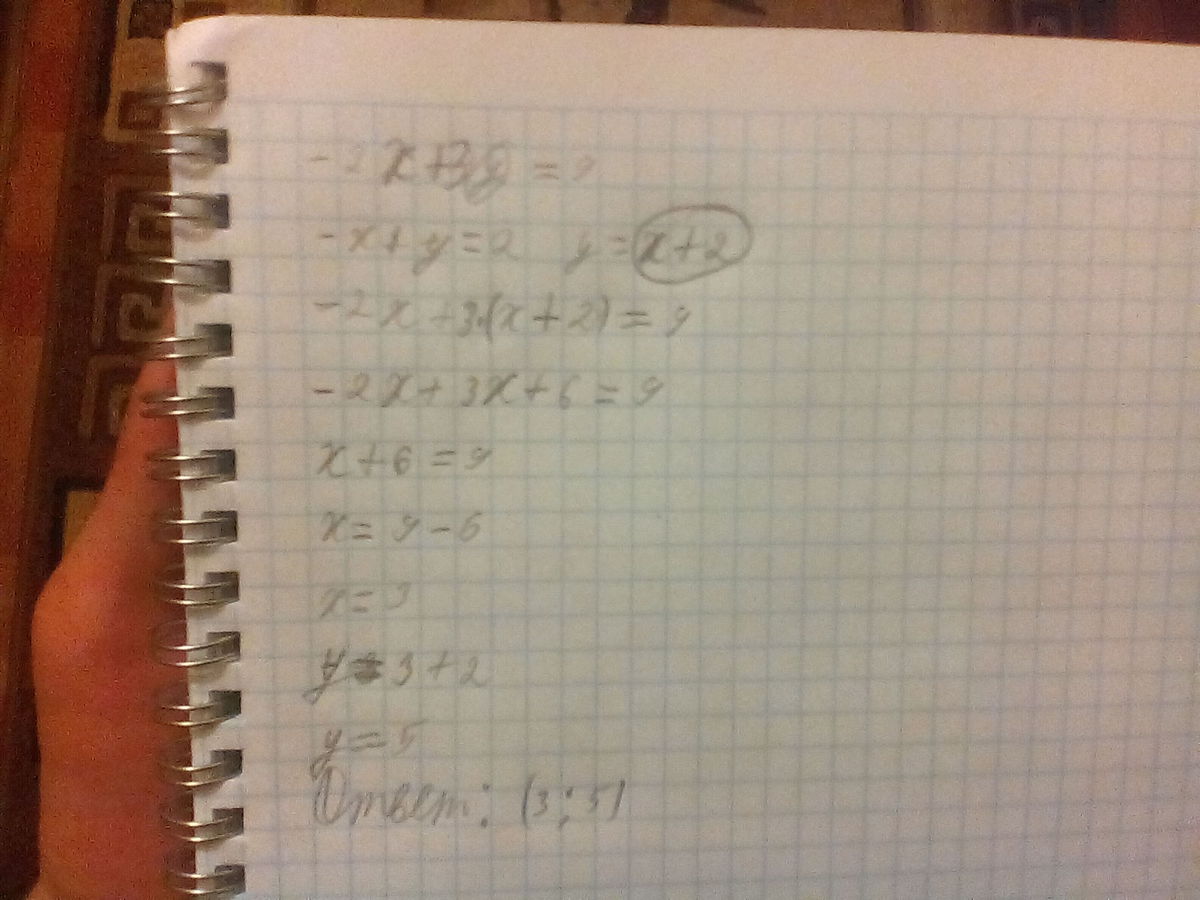 -2x+3y=9
-x+y=2 y=x+2
-2x+3·(x+2)=9
-2x+3x+6=9
x+6=9
x=9-6
x=3
y=3+2
y=5
Ответ: (3;5)